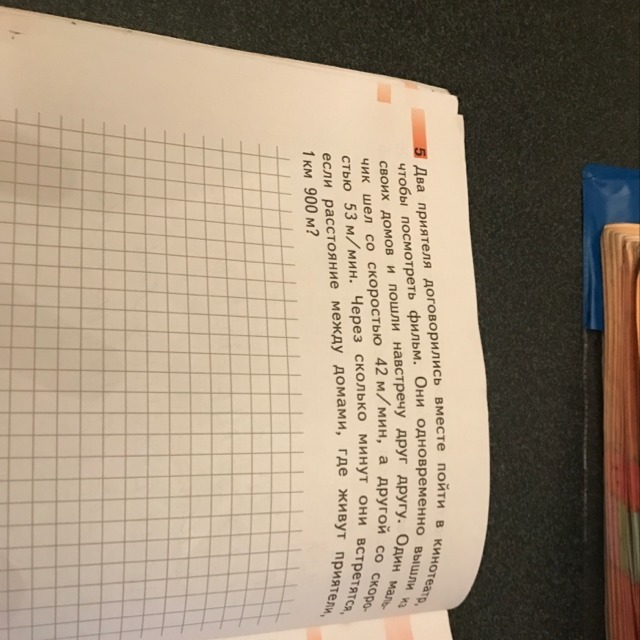 5 Два приятеля договорились вместе пойти в кинотеатр,
чтобы посмотреть фильм. Они одновременно вышли из
своих домов и пошли навстречу друг другу. Один маль-
чик шел со скоростью 42 м/мин, а другой со скоро-
стью 53 м/мин. Через сколько минут они встретятся,
если расстояние между домами, где живут приятели,
1 км 900 м?